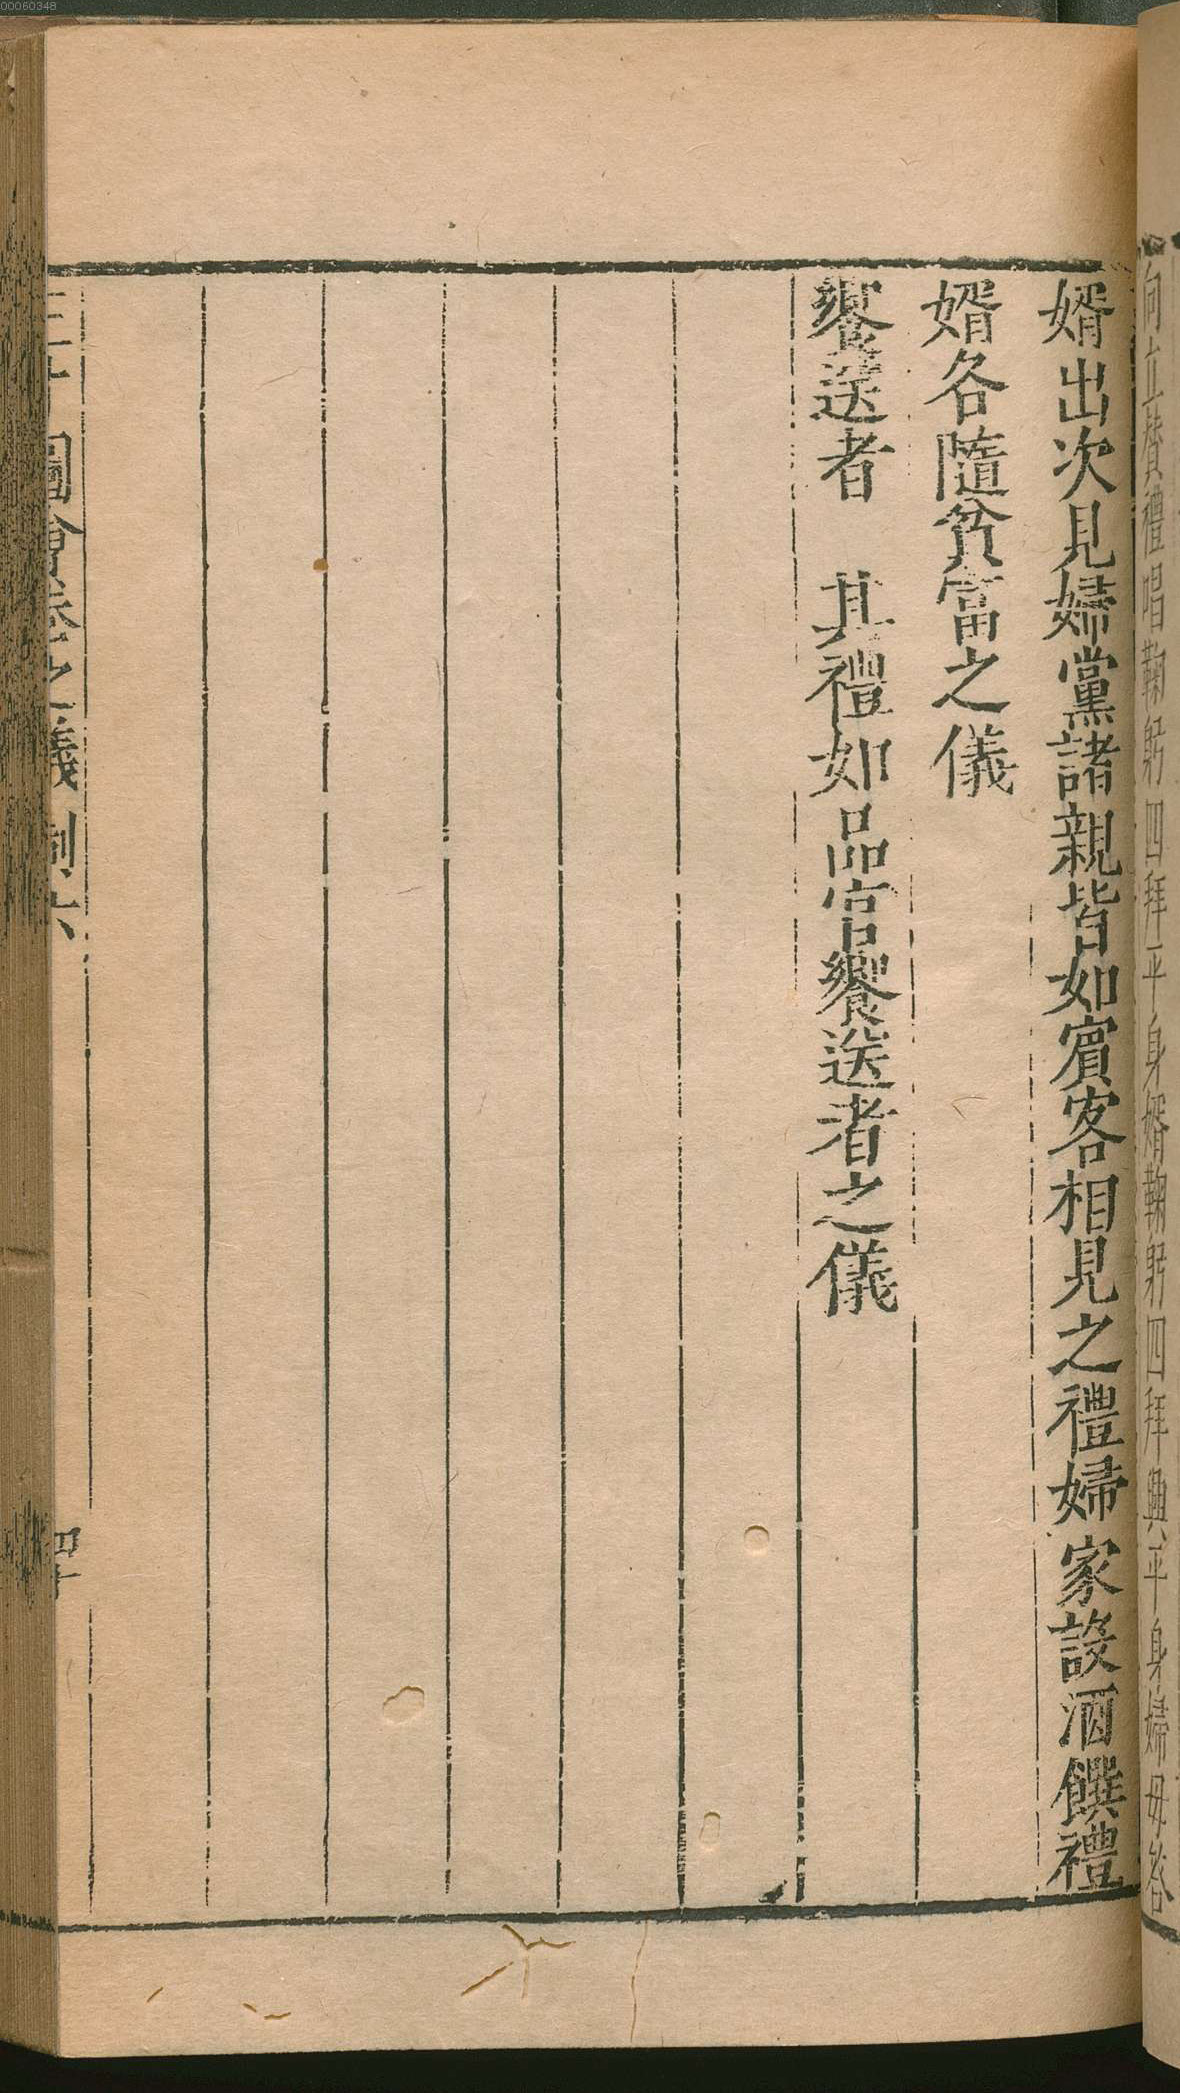 00060348
向立贊禮唱鞠躬四拜平身婿鞠躬四拜興平身婦母答
婿出次見婦黨諸親皆如賓客相見之禮婦家設酒饌禮
婿各隨貧富之儀
饗送者　其禮如品官饗送者之儀
三才圖會卷之儀制六
四十